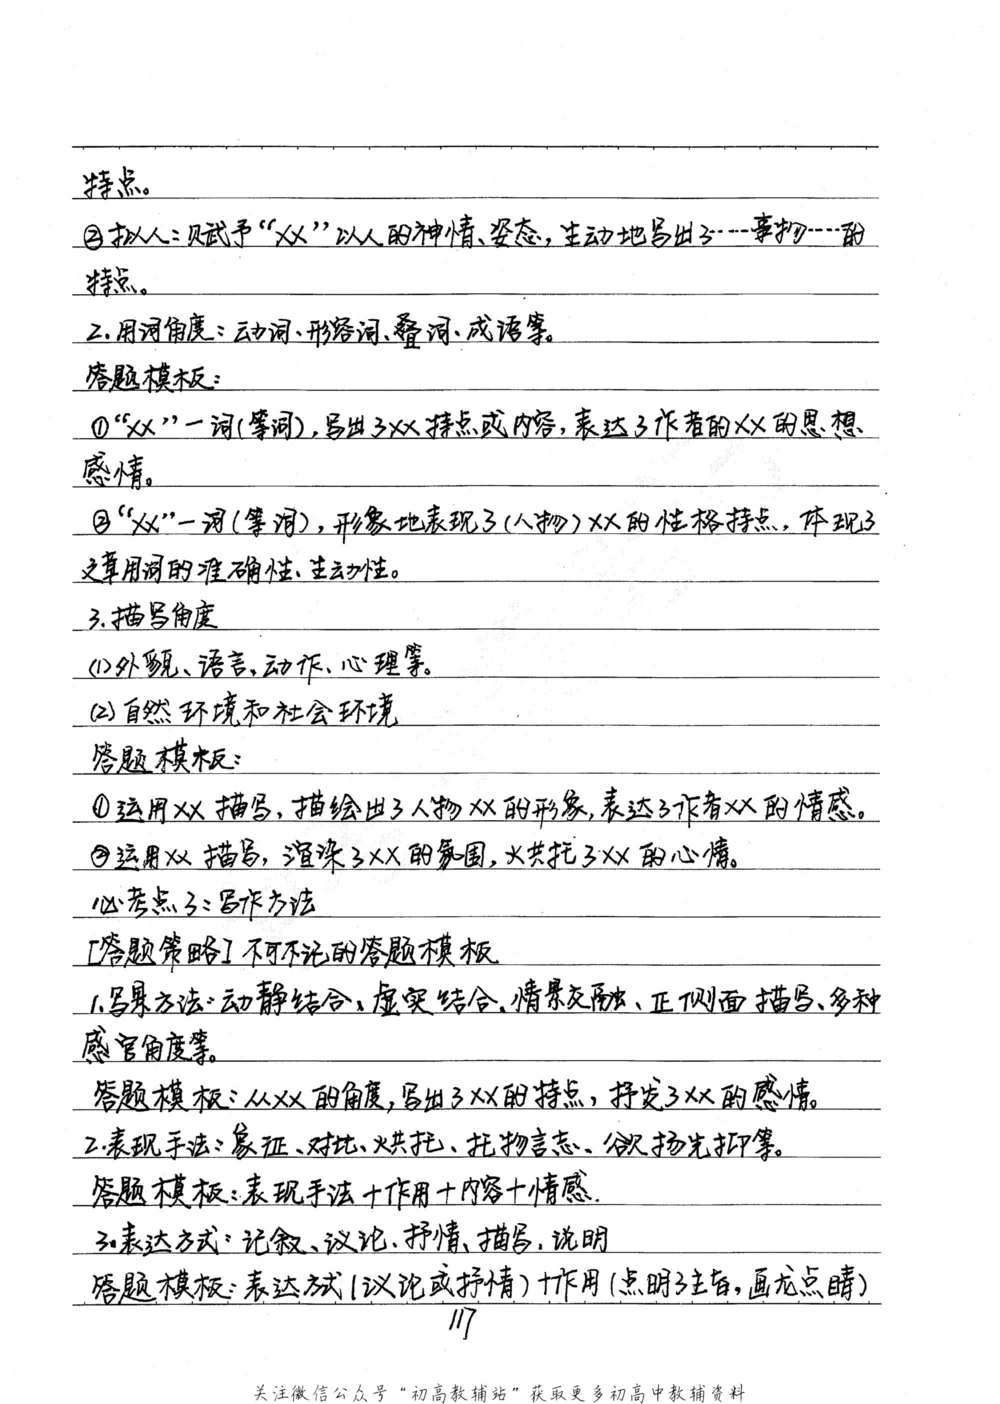 特点。
②拟人:赋予“XX”以人的神情、姿态,生动地写出了……事物……的
特点。
2.用词角度:动词、形容词、叠词、成语等。
答题模板:
①“XX”一词(等词),写出了XX特点或内容,表达了作者的XX的思想
感情。
②“XX”一词(等词),形象地表现了(人物)XX的性格特点,体现了
文章用词的准确性、生动性。
3.描写角度
(1)外貌、语言、动作、心理等。
(2)自然环境和社会环境
答题模板:
①运用XX描写,描绘出了人物XX的形象,表达了作者XX的情感。
②运用XX描写,渲染了XX的氛围,烘托了XX的心情。
必考点3:写作方法
[答题策略]不可不记的答题模板
1.写景方法:动静结合、虚实结合、情景交融、正侧面描写、多种
感官角度等。
答题模板:从XX的角度,写出了XX的特点,抒发了XX的感情。
2.表现手法:象征、对比、烘托、托物言志、欲扬先抑等。
答题模板:表现手法+作用+内容+情感.
3.表达方式:记叙、议论、抒情、描写、说明
答题模板:表达方式(议论或抒情)+作用(点明了主旨,画龙点睛)
117
关注微信公众号“初高教辅站”获取更多初高中教辅资料